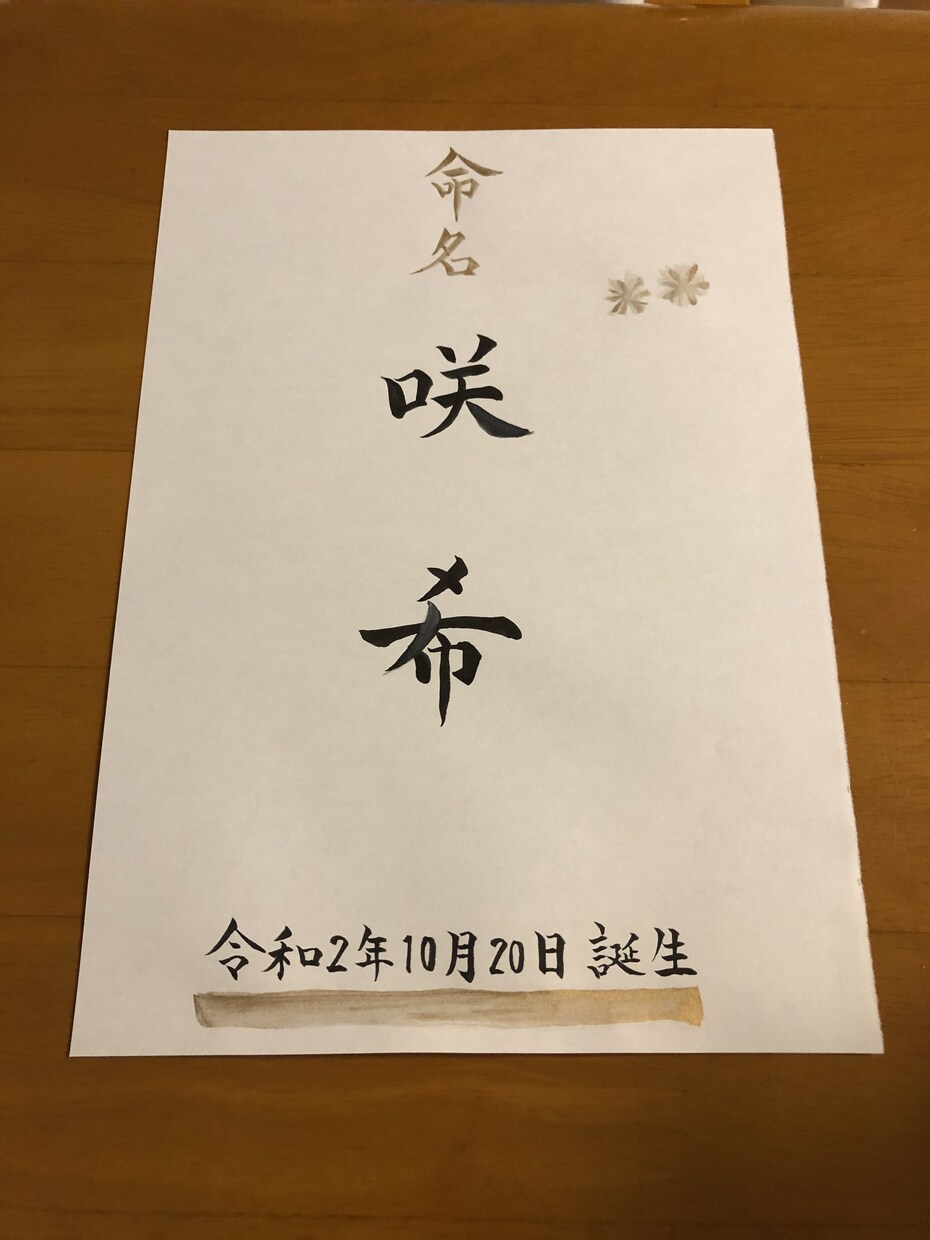 命名
咲希
令和2年10月20日 誕生